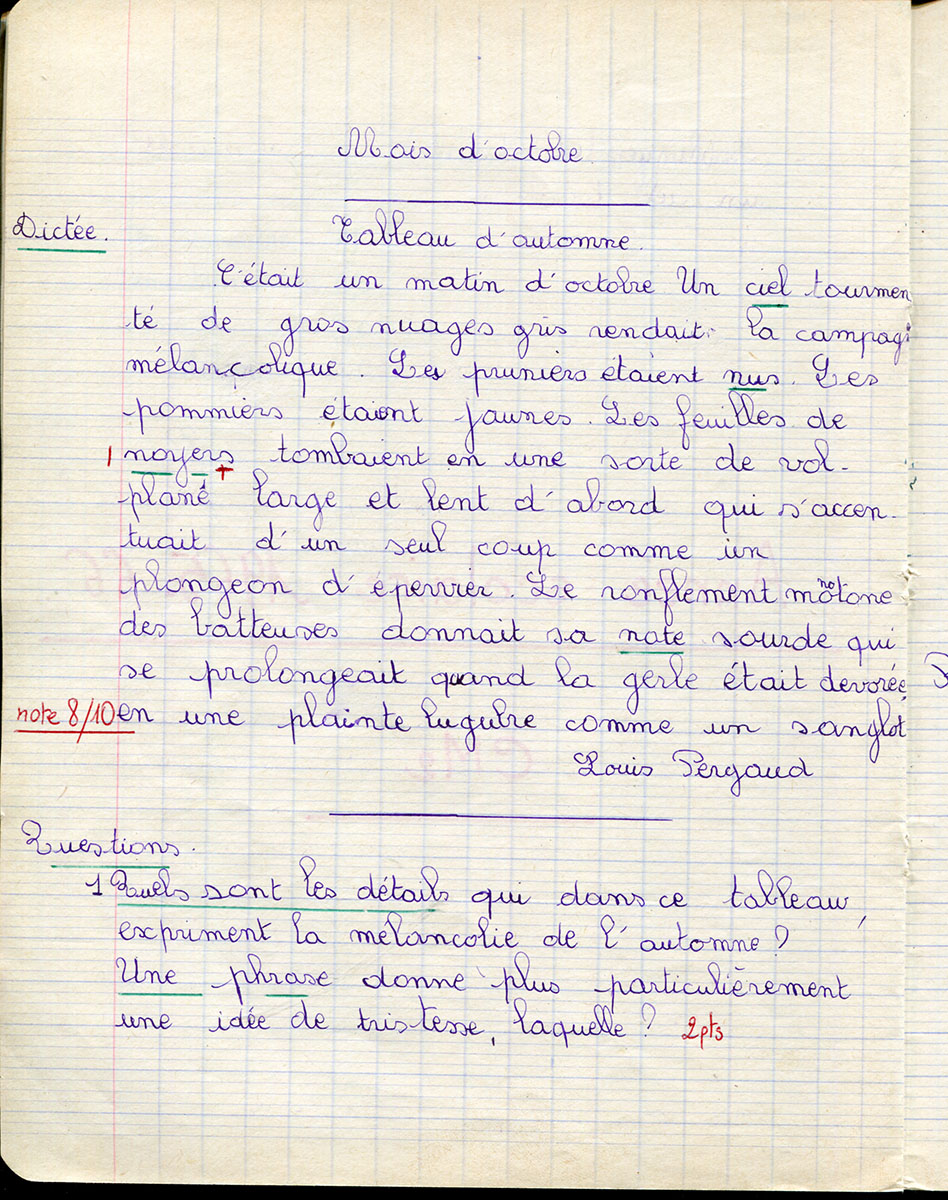 Mois d'octobre
Dictée. Tableau d'automne.
C'était un matin d'octobre Un ciel tourmen
té de gros nuages gris rendait la campag
mélançolique. Les pruniers étaient nus. Les
pommiers étaient jaunes. Les feuilles de
1 noyers + tombaient en une sorte de vol-
plané large et lent d'abord qui s'accen-
tuait d'un seul coup comme un
plongeon d'épervier. Le ronflement monotone
des batteuses donnait sa note sourde qui
se prolongeait quand la gerbe était devorée,
note 8/10 en une plainte lugubre comme un sanglot
Louis Pergaud
Questions.
1 Quels sont les détails qui dans ce tableau,
expriment la mélancolie de l'automne?
Une phrase donne plus particulièrement
une idée de tristesse, laquelle? 2pts